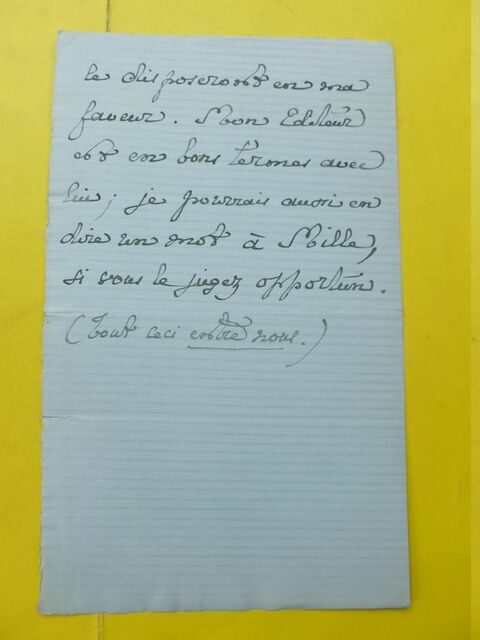 le disposeront en ma
faveur. Mon Editeur
est en bons termes avec
lui; je pourrais aussi en
dire un mot à Mille,
si vous le jugez opportun.
(Tout ceci entre nous.)